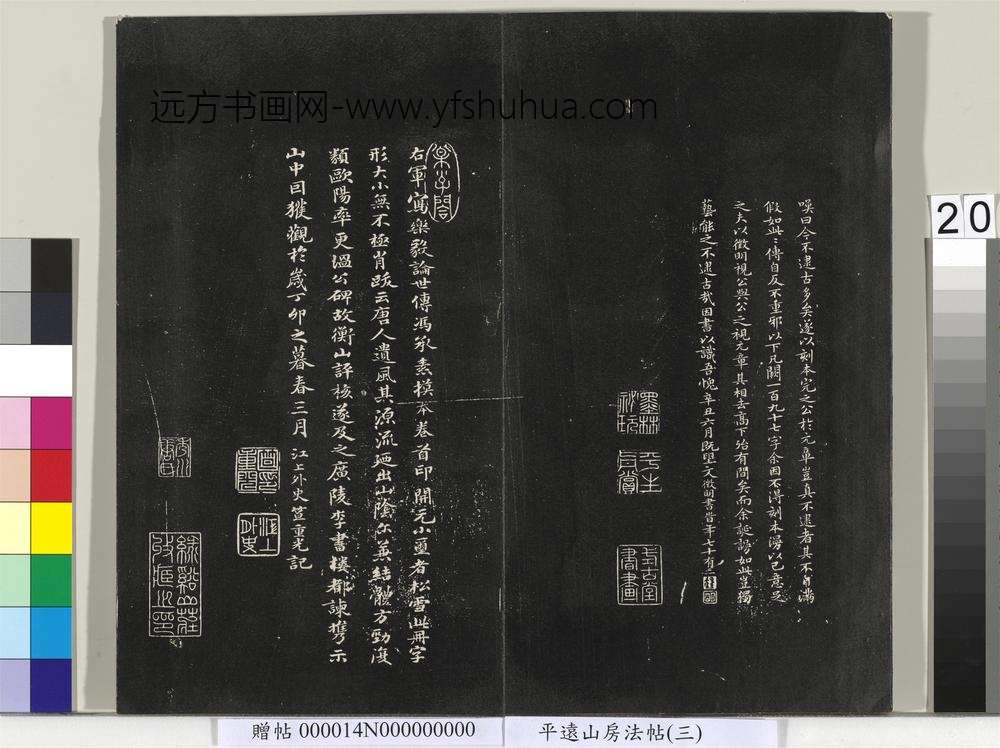 远方书画网-www.yfshuhua.com
嘆曰今不逮古多矣遂以刻本完之公於元章豈真不逮者其不自滿
假如此傳自反不重邪以下凡闕一百九十七字余因不得刻本漫以己意足
之夫以徵明視公與公之視元章其相去高下殆有間矣而余誕謗如此豈獨
藝能之不逮古哉因書以識吾愧辛丑六月既望文徵明書昔年七十有二
墨林祕玩
平生真賞
右軍寫樂毅論世傳馮承素摸本卷首印開元小璽者松雪此冊字
形大小無不極肖跋云唐人遺風其源流迺出山陰尓葢結體方勁復
類歐陽率更溫公碑故衡山評核遂及之廣陵李書樓都諫攜示
山中因獲觀於歲丁卯之暮春三月 江上外史笪重光記
江上外史
20
贈帖 000014N000000000
平遠山房法帖(三)